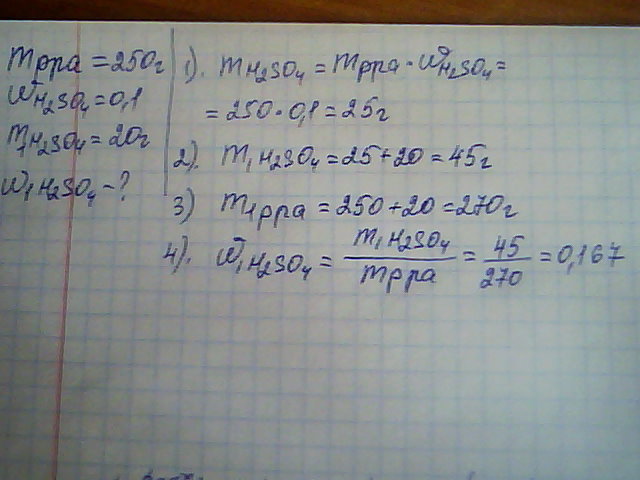 mр-ра = 250г
WH₂SO₄ = 0,1
m₁H₂SO₄ = 20г
W₁H₂SO₄ - ?
1). mH₂SO₄ = mр-ра · WH₂SO₄ =
= 250 · 0,1 = 25г
2). m₁H₂SO₄ = 25 + 20 = 45г
3) m₁р-ра = 250 + 20 = 270г
4). W₁H₂SO₄ = m₁H₂SO₄ / mр-ра = 45 / 270 = 0,167